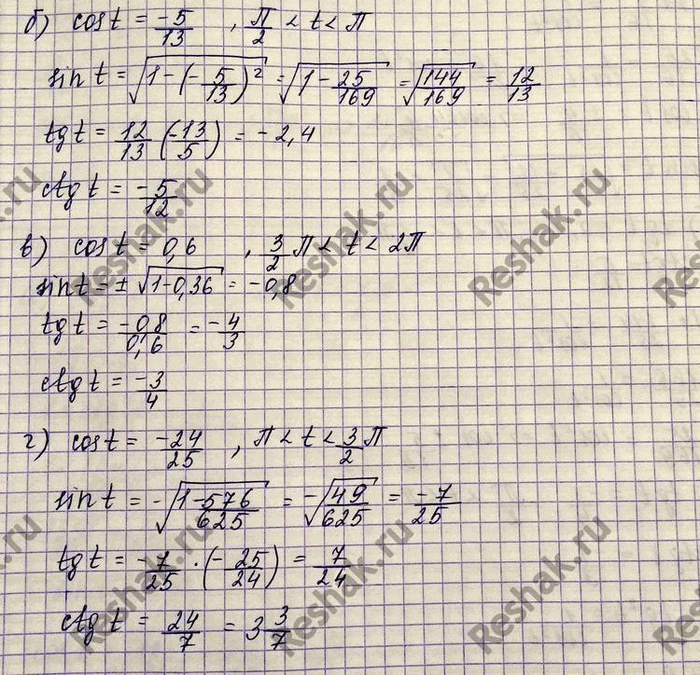 б) cos t = -5/13 , π/2 < t < π
sin t = √(1-(-5/13)²) = √(1-25/169) = √(144/169) = 12/13
tg t = 12/13 (-13/5) = -2,4
ctg t = -5/12
в) cos t = 0,6 , 3/2 π < t < 2π
sin t = ± √(1-0,36) = -0,8
tg t = -0,8/0,6 = -4/3
ctg t = -3/4
г) cos t = -24/25 , π < t < 3/2 π
sin t = -√(1-576/625) = -√(49/625) = -7/25
tg t = -7/25 · (-25/24) = 7/24
ctg t = 24/7 = 3 3/7
Reshak.ru
Reshak.ru
Reshak.ru
Reshak.ru
Reshak.ru